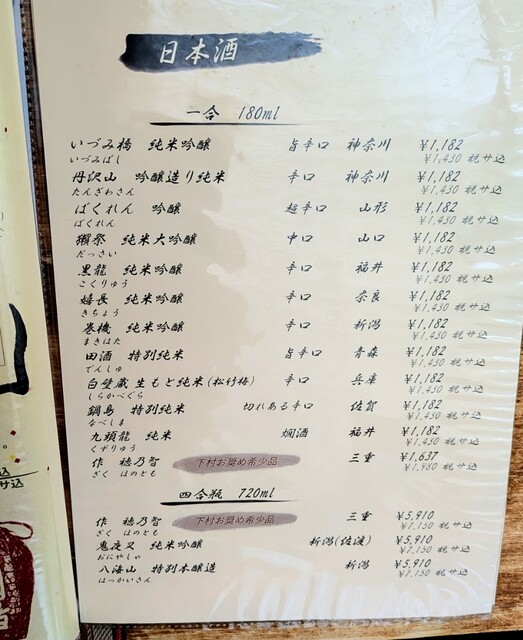 日本酒
一合 180ml
いづみ橋 純米吟醸 旨辛口 神奈川 ¥1,182
いづみばし ¥1,430 税サ込
丹沢山 吟醸造り純米 辛口 神奈川 ¥1,182
たんざわさん ¥1,430 税サ込
ばくれん 吟醸 超辛口 山形 ¥1,182
ばくれん ¥1,430 税サ込
獺祭 純米大吟醸 中口 山口 ¥1,182
だっさい ¥1,430 税サ込
黒龍 純米吟醸 辛口 福井 ¥1,182
こくりゅう ¥1,430 税サ込
嬉長 純米吟醸 辛口 奈良 ¥1,182
きちょう ¥1,430 税サ込
巻機 純米吟醸 辛口 新潟 ¥1,182
まきはた ¥1,430 税サ込
田酒 特別純米 旨辛口 青森 ¥1,182
でんしゅ ¥1,430 税サ込
白壁蔵 生もと純米(松竹梅) 辛口 兵庫 ¥1,182
しらかべぐら ¥1,430 税サ込
鍋島 特別純米 切れある辛口 佐賀 ¥1,182
なべしま ¥1,430 税サ込
九頭龍 純米 燗酒 福井 ¥1,182
くずりゅう ¥1,430 税サ込
作 穂乃智 下村お奨め希少品 三重 ¥1,637
ざく ほのとも ¥1,980 税サ込
四合瓶 720ml
作 穂乃智 下村お奨め希少品 三重 ¥5,910
ざく ほのとも ¥7,150 税サ込
鬼夜叉 純米吟醸 新潟(佐渡) ¥5,910
おにやしゃ ¥7,150 税サ込
八海山 特別本醸造 新潟 ¥5,910
はっかいさん ¥7,150 税サ込